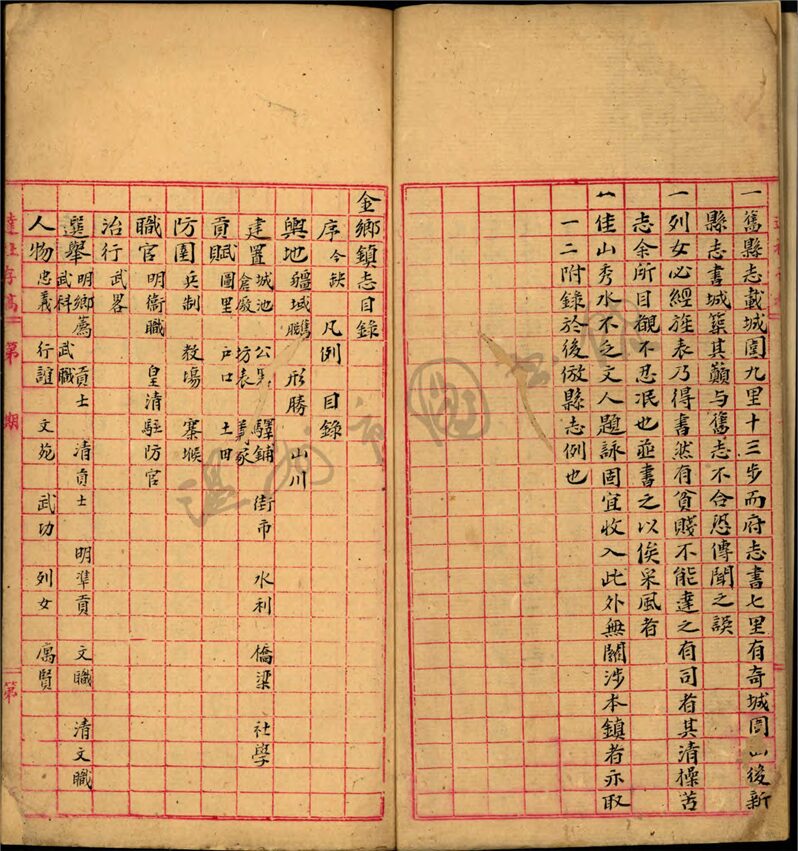 一舊縣志載城圍九里十三步而府志書七里有奇城圍山後新
縣志書城築其巔與舊志不合恐傳聞之誤
一列女必經旌表乃得書然有貧賤不能達之有司者其清操苦
志余所目覩不忍泯也並書之以俟采風者
一佳山秀水不乏文人題詠固宜收入此外無關涉本鎮者亦取
一二附錄於後倣縣志例也
金鄉鎮志目錄
序 今缺 凡例 目錄
輿地 疆域 形勝 山川
建置 城池 公署 驛鋪 街市 水利 橋梁 社學
倉廒 坊表 義冢
貢賦 圖里 戶口 土田
防圉 兵制 教場 寨堠
職官 明衞職 皇清駐防官
治行 武畧
選舉 明鄉薦 貢士 清貢士 明準貢 文職 清文職
武科 武職
人物 忠義 行誼 文苑 武功 列女 寓賢
第 期
第